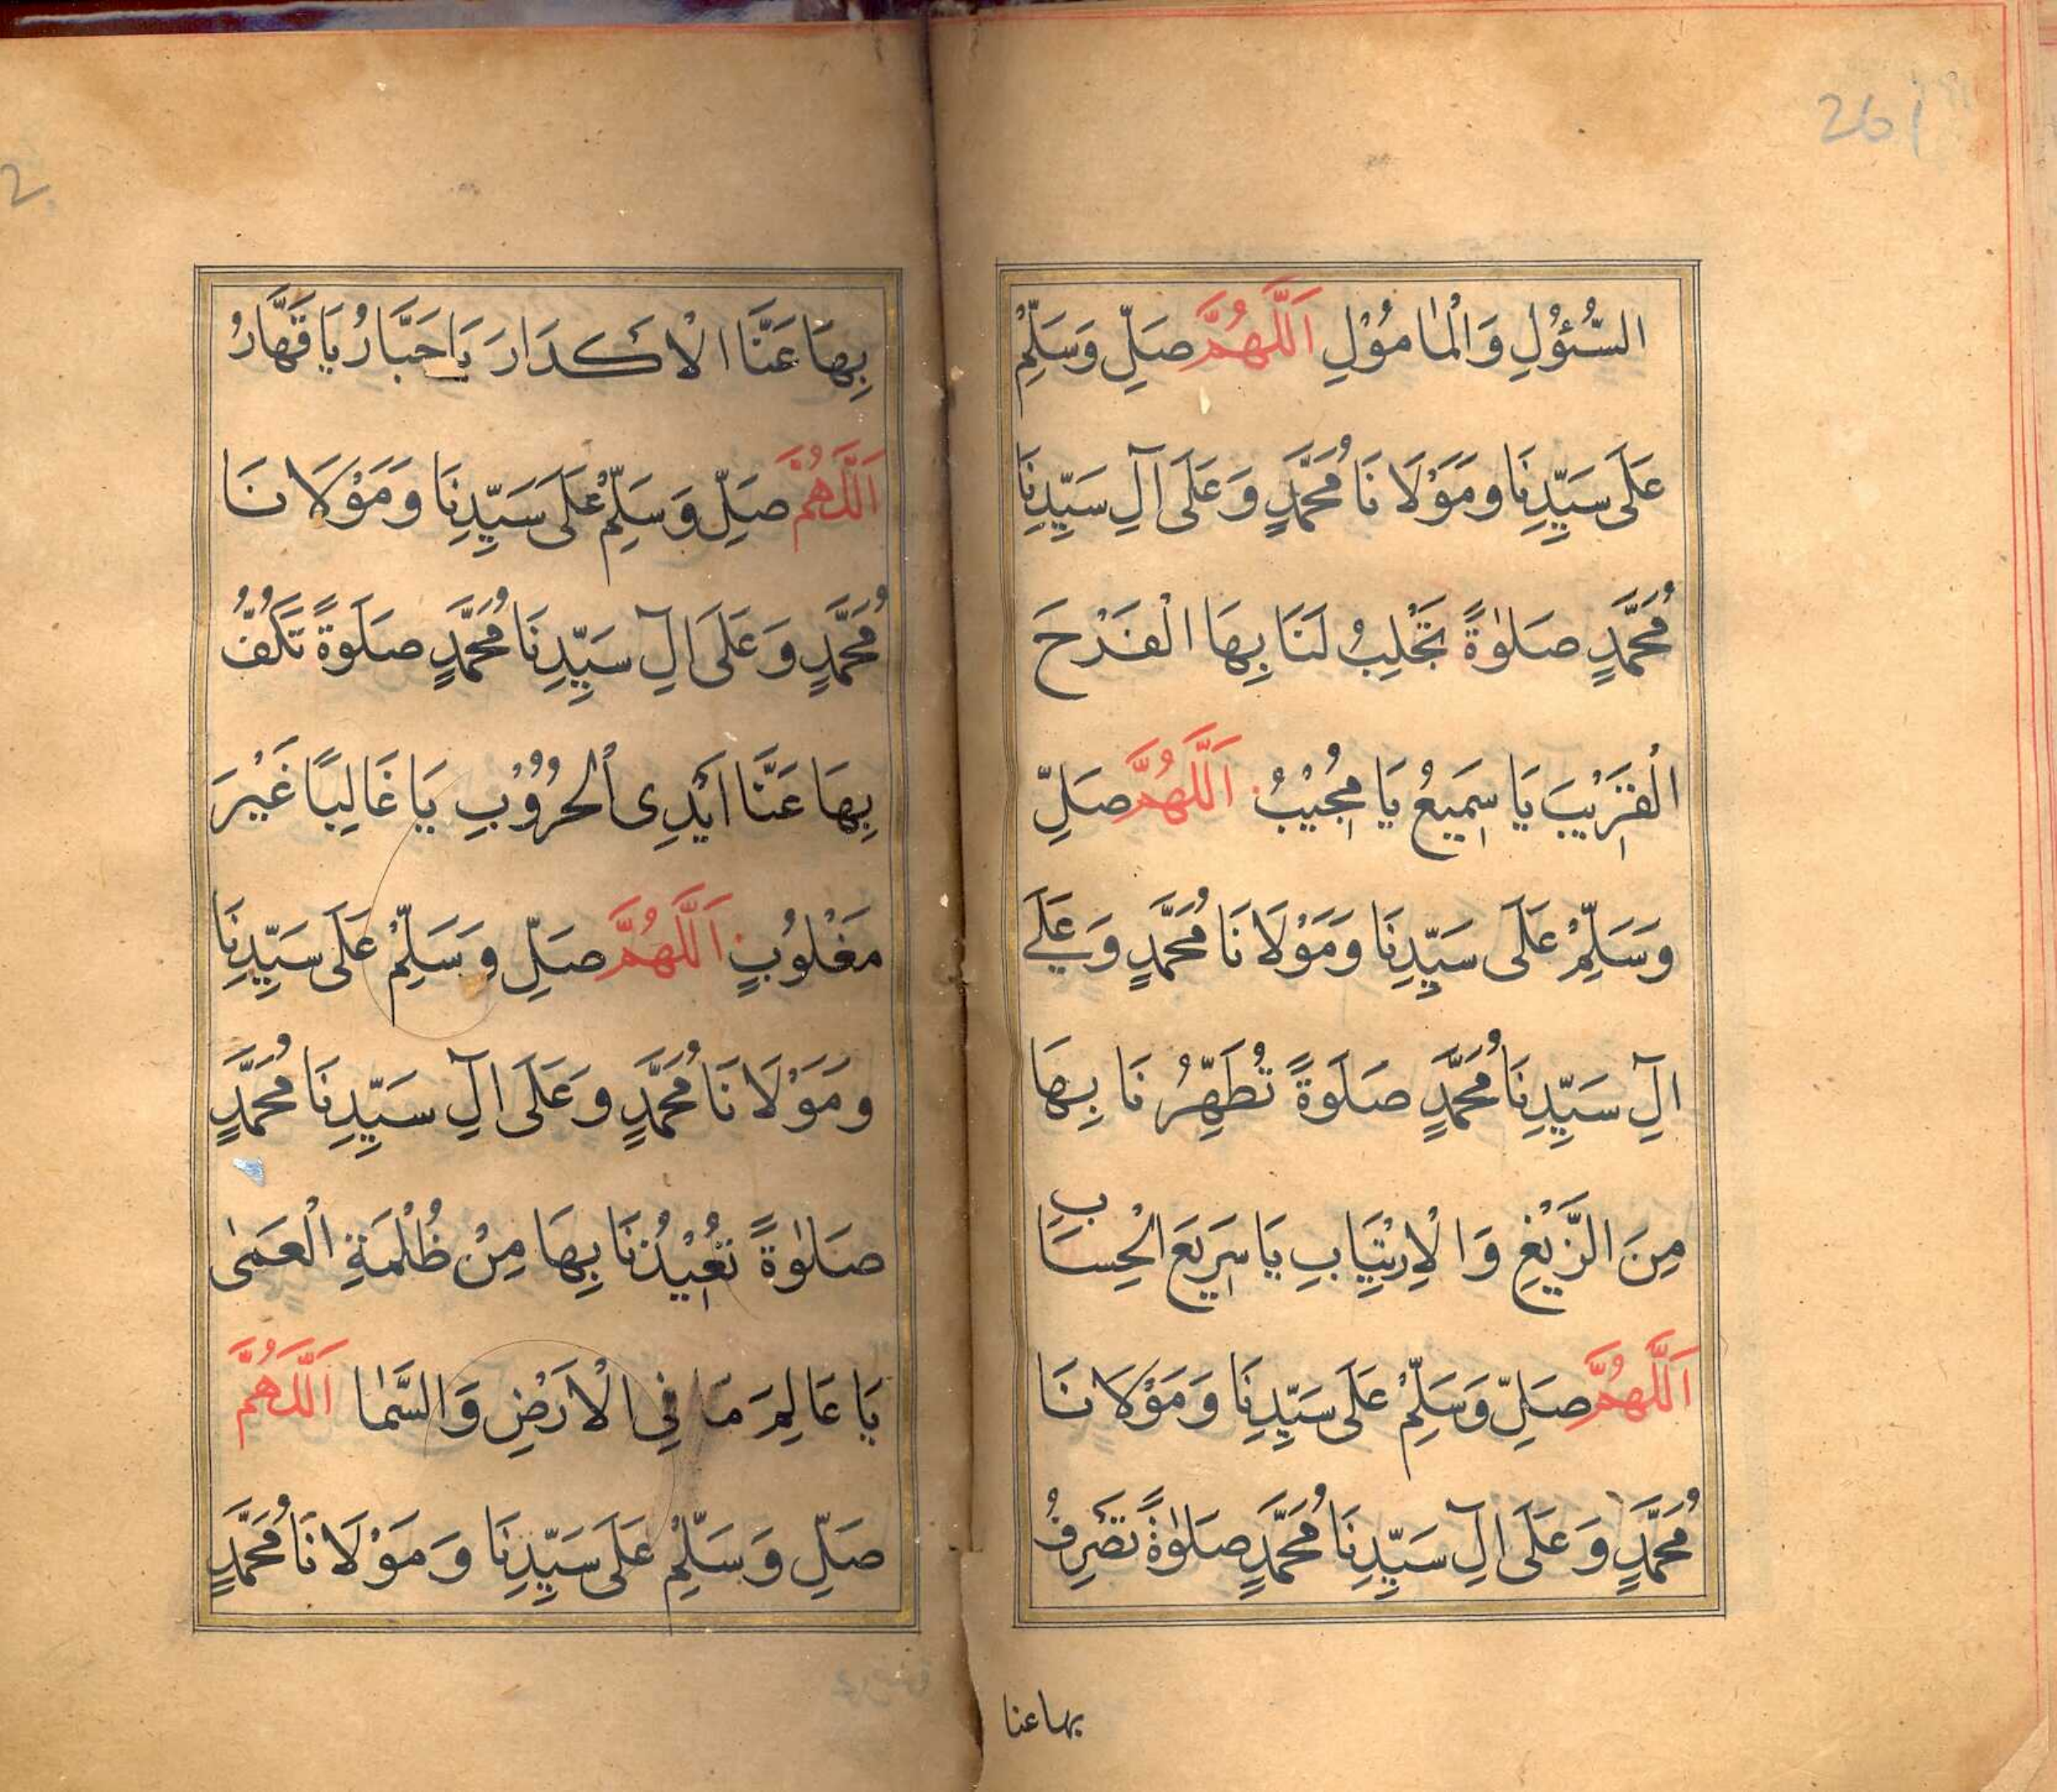 261
السُّئُوْلِ وَالْمٰامُوْلِ اَللّٰهُمَّ صَلِّ وَسَلِّمْ
عَلَى سَيِّدِنَا وَمَوْلَانَا مُحَمَّدٍ وَعَلَى آلِ سَيِّدِنَا
مُحَمَّدٍ صَلٰوةً تَجْلِبُ لَنَا بِهَا الْفَرْحَ
الْقَرِيْبَ يَا سَمِيعُ يَا مُجِيْبُ اَللّٰهُمَّ صَلِّ
وَسَلِّمْ عَلَى سَيِّدِنَا وَمَوْلَانَا مُحَمَّدٍ وَعَلَى
اٰلِ سَيِّدِنَا مُحَمَّدٍ صَلَوةً تُطَهِّرُنَا بِهَا
مِنَ الزَّيْغِ وَالْاِرْتِيَابِ يَا سَرِيعَ الْحِسَابِ
اَللّٰهُمَّ صَلِّ وَسَلِّمْ عَلَى سَيِّدِنَا وَمَوْلَانَا
مُحَمَّدٍ وَعَلَى اٰلِ سَيِّدِنَا مُحَمَّدٍ صَلٰوةً تَصْرِفُ
بها عنا
2
بِهَا عَنَّا الْاَكدَارَ يَا جَبَّارُ يَا قَهَّارُ
اَللّٰهُمَّ صَلِّ وَسَلِّمْ عَلَى سَيِّدِنَا وَمَوْلَانَا
مُحَمَّدٍ وَعَلَى اٰلِ سَيِّدِنَا مُحَمَّدٍ صَلَوةً تَكُفُّ
بِهَا عَنَّا اَيْدِى الْحُرُوْبِ يَا غَالِبًا غَيْرَ
مَغْلُوْبٍ اَللّٰهُمَّ صَلِّ وَسَلِّمْ عَلَى سَيِّدِنَا
وَمَوْلَانَا مُحَمَّدٍ وَعَلَى اٰلِ سَيِّدِنَا مُحَمَّدٍ
صَلٰوةً تُعِيْذُنَا بِهَا مِنْ ظُلْمَةِ الْعَمٰى
يَا عَالِمَ مَا فِي الْاَرْضِ وَالسَّمٰا اَللّٰهُمَّ
صَلِّ وَسَلِّمْ عَلَى سَيِّدِنَا وَمَوْلَانَا مُحَمَّدٍ